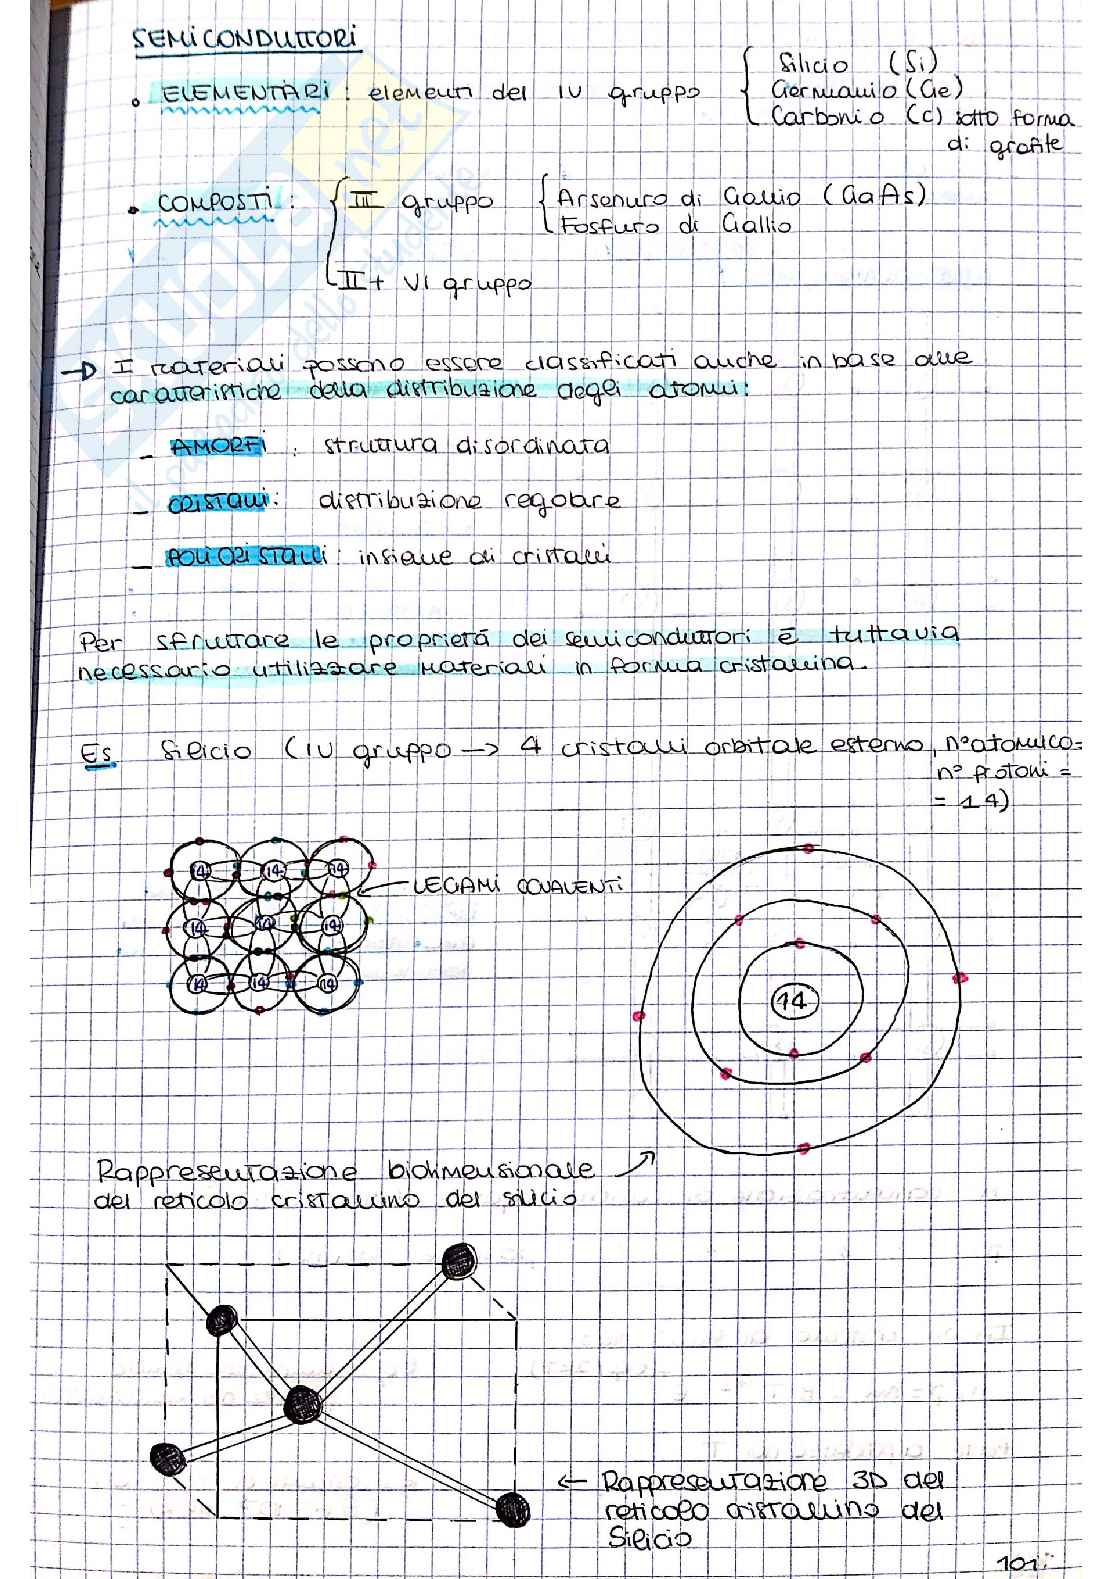 SEMICONDUTTORI
• ELEMENTARI : elementi del IV gruppo { Silicio (Si)
Germanio (Ge)
Carbonio (C) sotto forma
di grafite
• COMPOSTI : { III gruppo { Arsenuro di Gallio (GaAs)
Fosfuro di Gallio
II + VI gruppo
→ I materiali possono essere classificati anche in base alle
caratteristiche della distribuzione degli atomi:
- AMORFI : struttura disordinata
- CRISTALLI : distribuzione regolare
- POLICRISTALLI : insieme di cristalli
Per sfruttare le proprietà dei semiconduttori è tuttavia
necessario utilizzare materiali in forma cristallina.
Es Silicio (IV gruppo → 4 cristalli orbitale esterno, n°atomico=
n° protoni =
= 14)
14 14 14
← LEGAMI COVALENTI
14 14 14
14 14 14
14
Rappresentazione bidimensionale
del reticolo cristallino del silicio
← Rappresentazione 3D del
reticolo cristallino del
Silicio
101